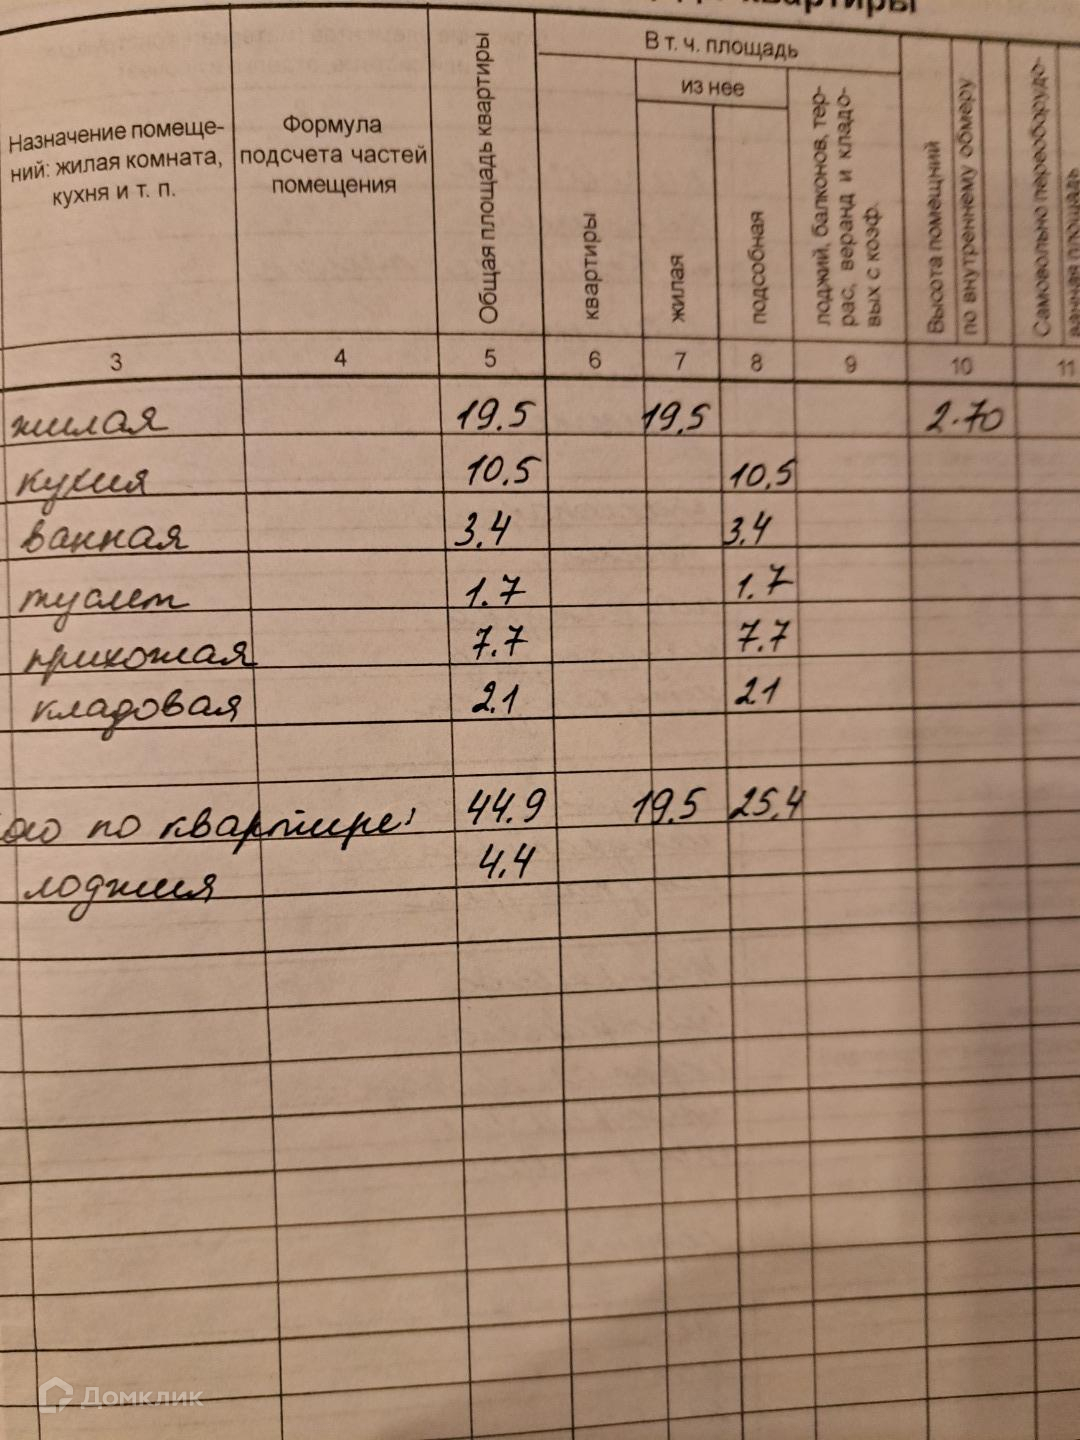 квартиры
Назначение помеще-
ний: жилая комната,
кухня и т. п.
Формула
подсчета частей
помещения
Общая площадь квартиры
В т. ч. площадь
из нее
квартиры
жилая
подсобная
лоджий, балконов, тер-
рас, веранд и кладо-
вых с коэф.
Высота помещний
по внутреннему обмеру
Самовольно переоборудо-
ванная площадь
3 4 5 6 7 8 9 10 11
жилая 19.5 19,5 2.70
кухня 10.5 10,5
ванная 3.4 3.4
туалет 1.7 1.7
прихожая 7.7 7.7
кладовая 2.1 2.1
по квартире: 44.9 19.5 25,4
лоджия 4.4
Домклик